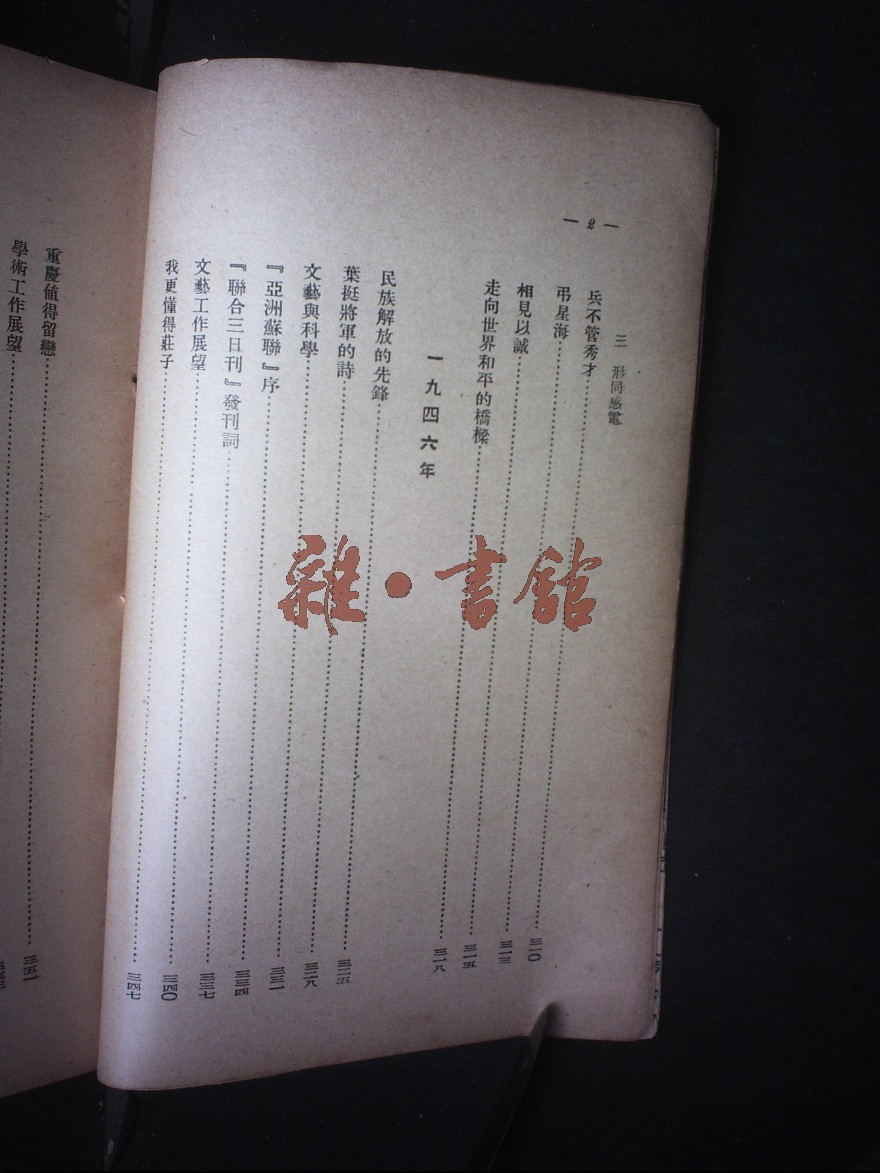 — 2 —
三 形同感電
兵不管秀才……三一〇
弔星海……三一三
相見以誠……三一五
走向世界和平的橋樑……三一八
一九四六年
民族解放的先鋒……三二五
葉挺將軍的詩……三二八
文藝與科學……三三一
『亞洲蘇聯』序……三三四
『聯合三日刊』發刊詞……三三七
文藝工作展望……三四〇
我更懂得莊子……三四七
重慶値得留戀……三五一
學術工作展望……
雜·書館